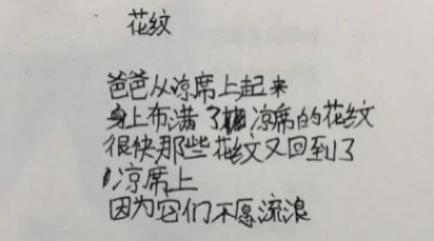 花纹
爸爸从凉席上起来
身上布满了凉席的花纹
很快那些花纹又回到了
凉席上
因为它们不愿流浪